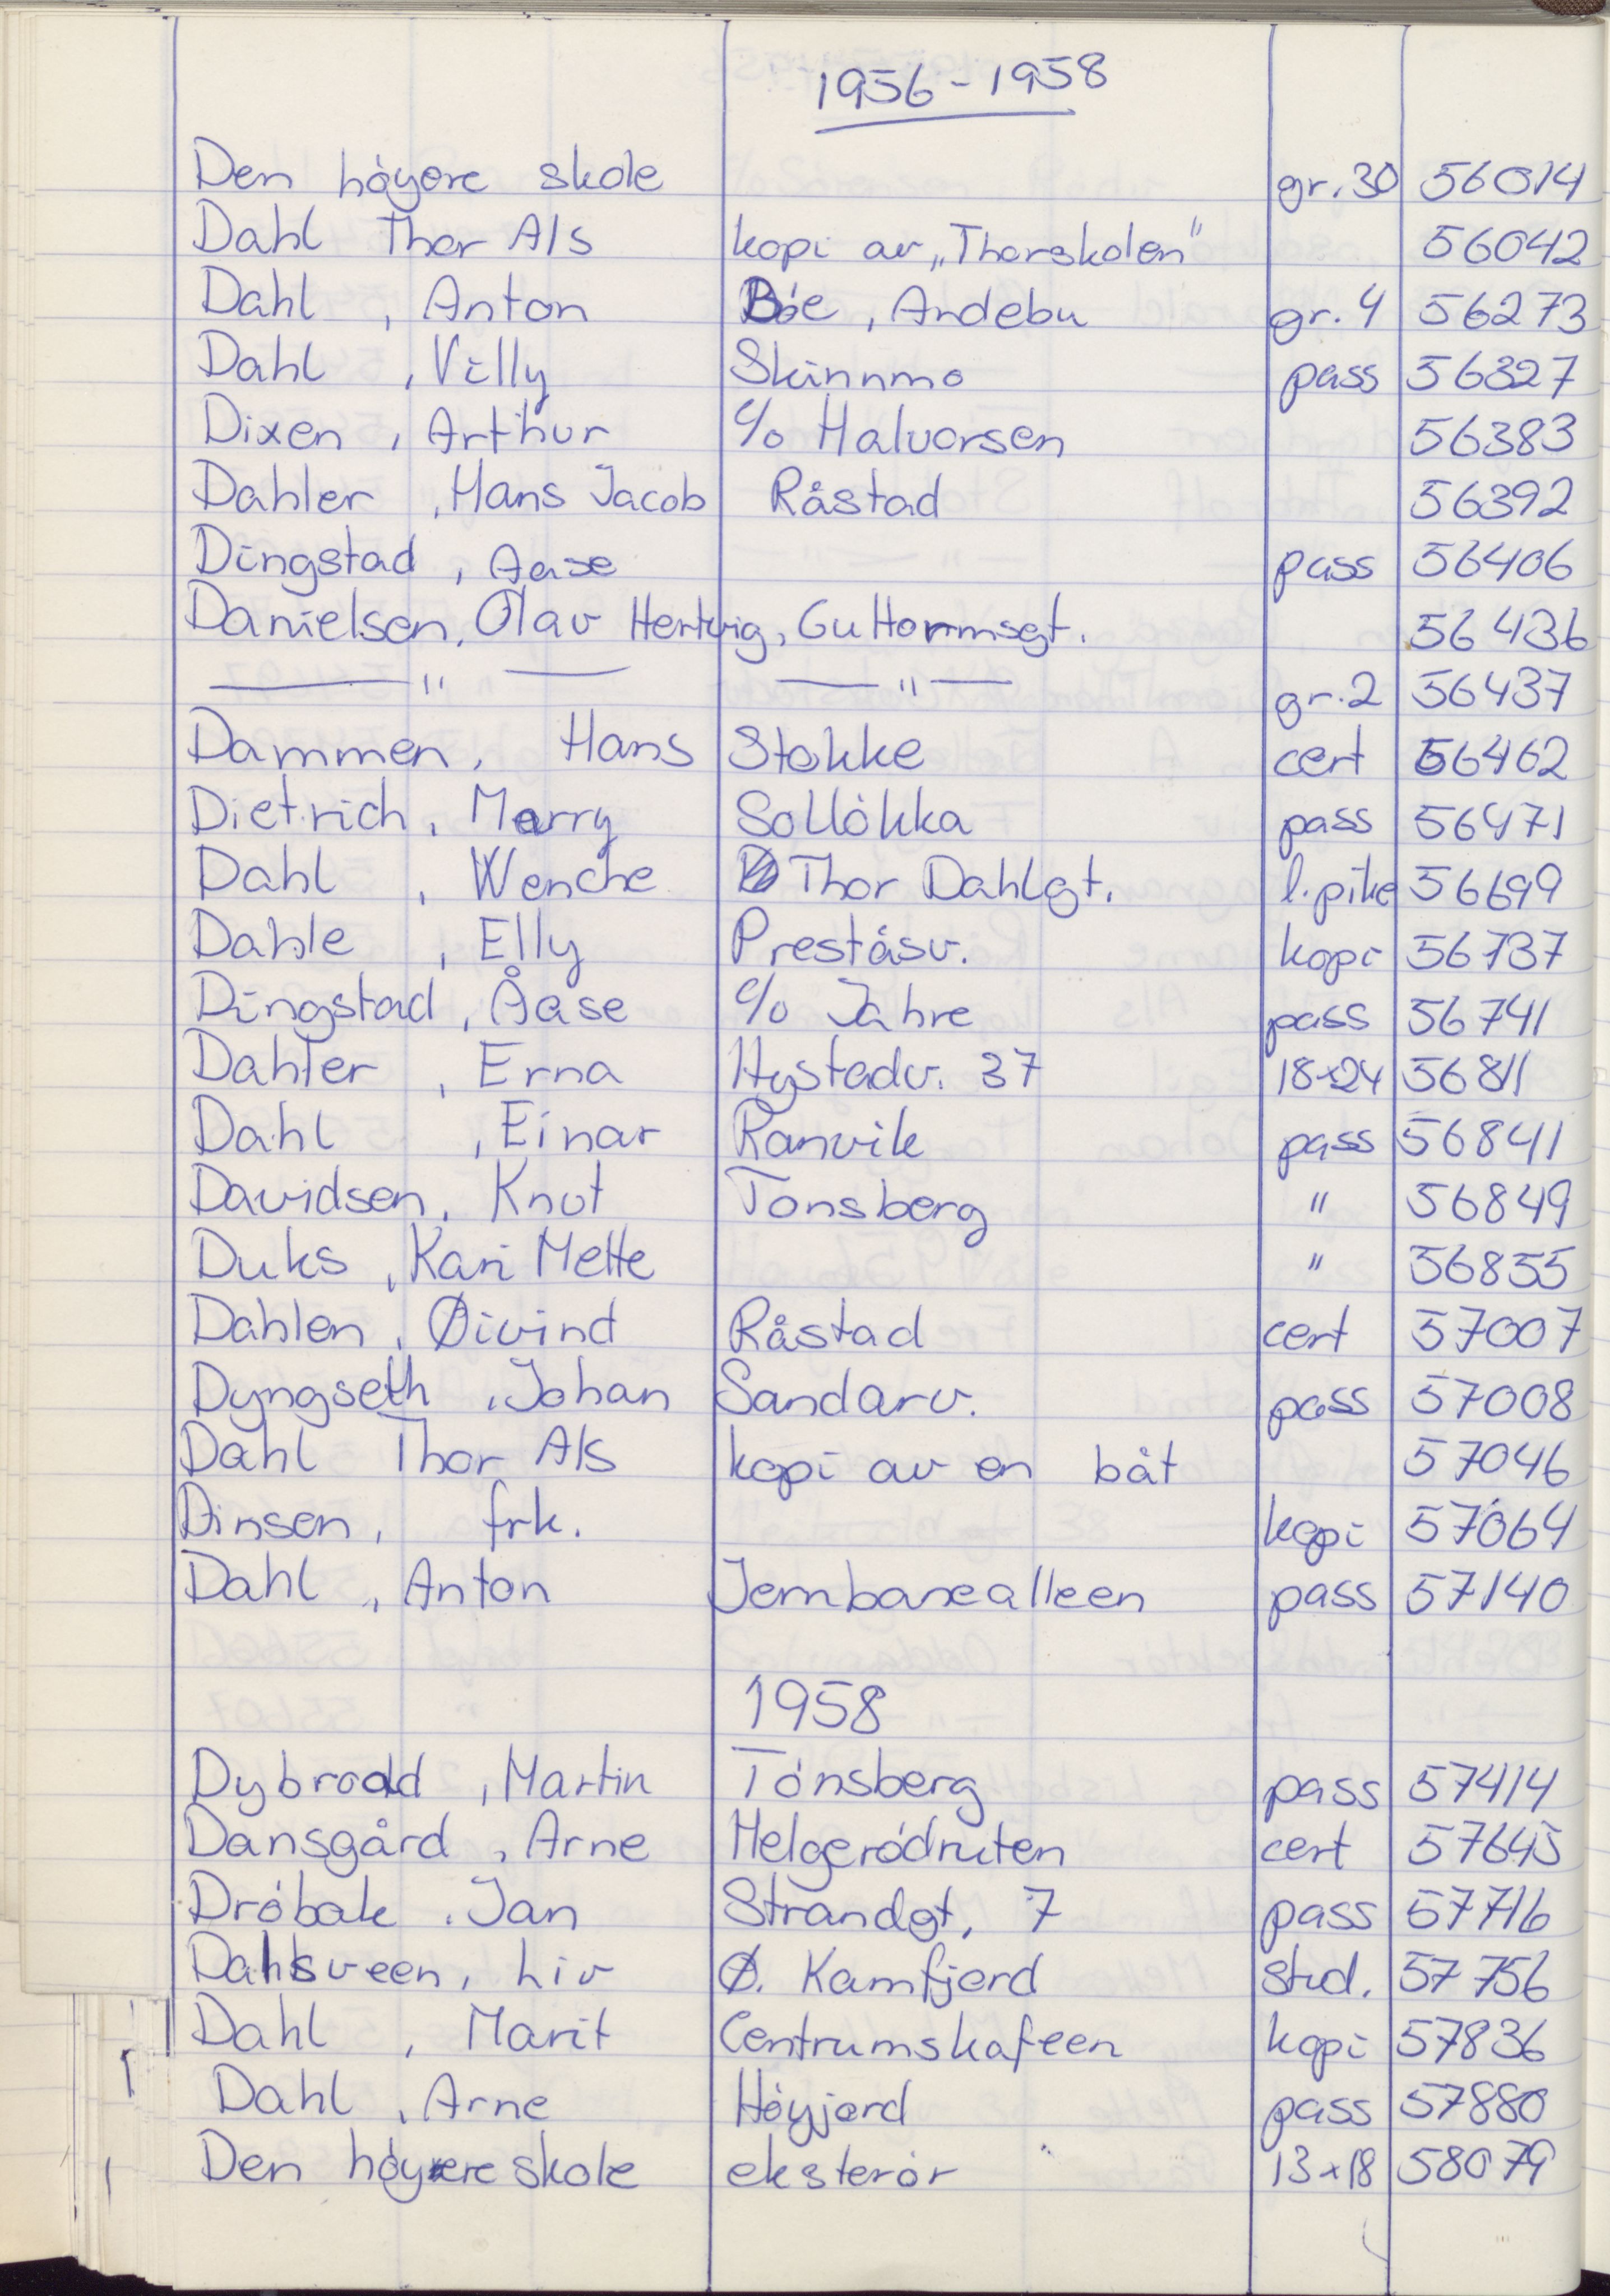 1956-1958
Den höyere skole gr.30 56014
Dahl Thor A/S kopi av „Thorskolen" 56042
Dahl , Anton Böe, Andebu gr.4 56273
Dahl , Villy Skinnmo pass 56327
Dixen , Arthur c/o Halvorsen 56383
Dahler , Hans Jacob Råstad 56392
Dingstad , Aase pass 56406
Danielsen, Olav Hertvig, Guttormsgt. 56436
—— " —— —— " —— gr.2 56437
Dammen, Hans Stokke cert 56462
Dietrich, Merry Sollökka pass 56471
Dahl , Wenche Thor Dahlgt. l.pike 56699
Dahle , Elly Preståsv. kopi 56737
Dingstad, Åase c/o Jahre pass 56741
Dahler , Erna Hystadv. 37 18x24 56811
Dahl , Einar Ranvik pass 56841
Davidsen, Knut Tonsberg " 56849
Duks , Kari Mette " 56855
Dahlen, Øivind Råstad cert 57007
Dyngseth , Johan Sandarv. pass 57008
Dahl Thor A/S kopi av en båt 57046
Dinsen, frk. kopi 57064
Dahl , Anton Jernbanealleen pass 57140
1958
Dybrodd , Martin Tönsberg pass 57414
Dansgård , Arne Helgerödruten cert 57645
Dröbak , Jan Strandgt, 7 pass 57716
Dahlsveen, Liv Ø. Kamfjord stud. 57756
Dahl , Marit Centrumskafeen kopi 57836
Dahl , Arne Höyjord pass 57880
Den höyere skole eksteriör 13x18 58079